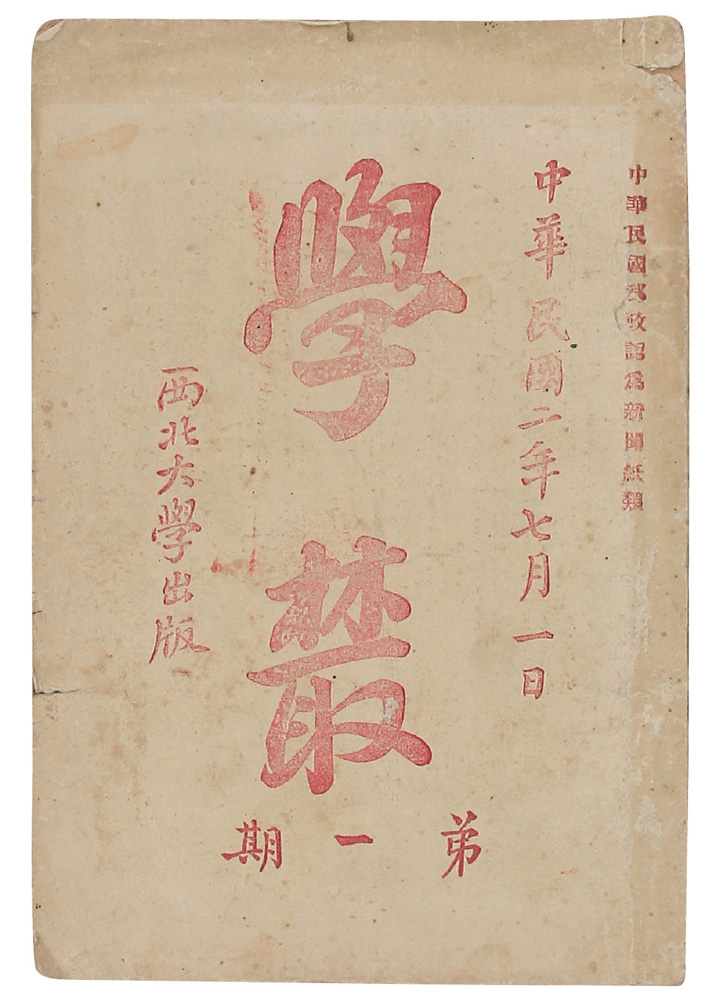 中華民國郵政認爲新聞紙類
中華民國二年七月一日
學叢
弟一期
西北大學出版